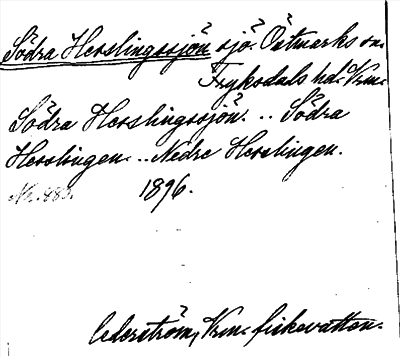 Södra Herslingssjön sjö. Östmarks sn.
Fryksdals hd. Vrm.
Södra Herslingssjön. .. Södra
Herslingen. .. Nedre Herslingen.
1896.
Cederström, Vrm. fiskevatten.